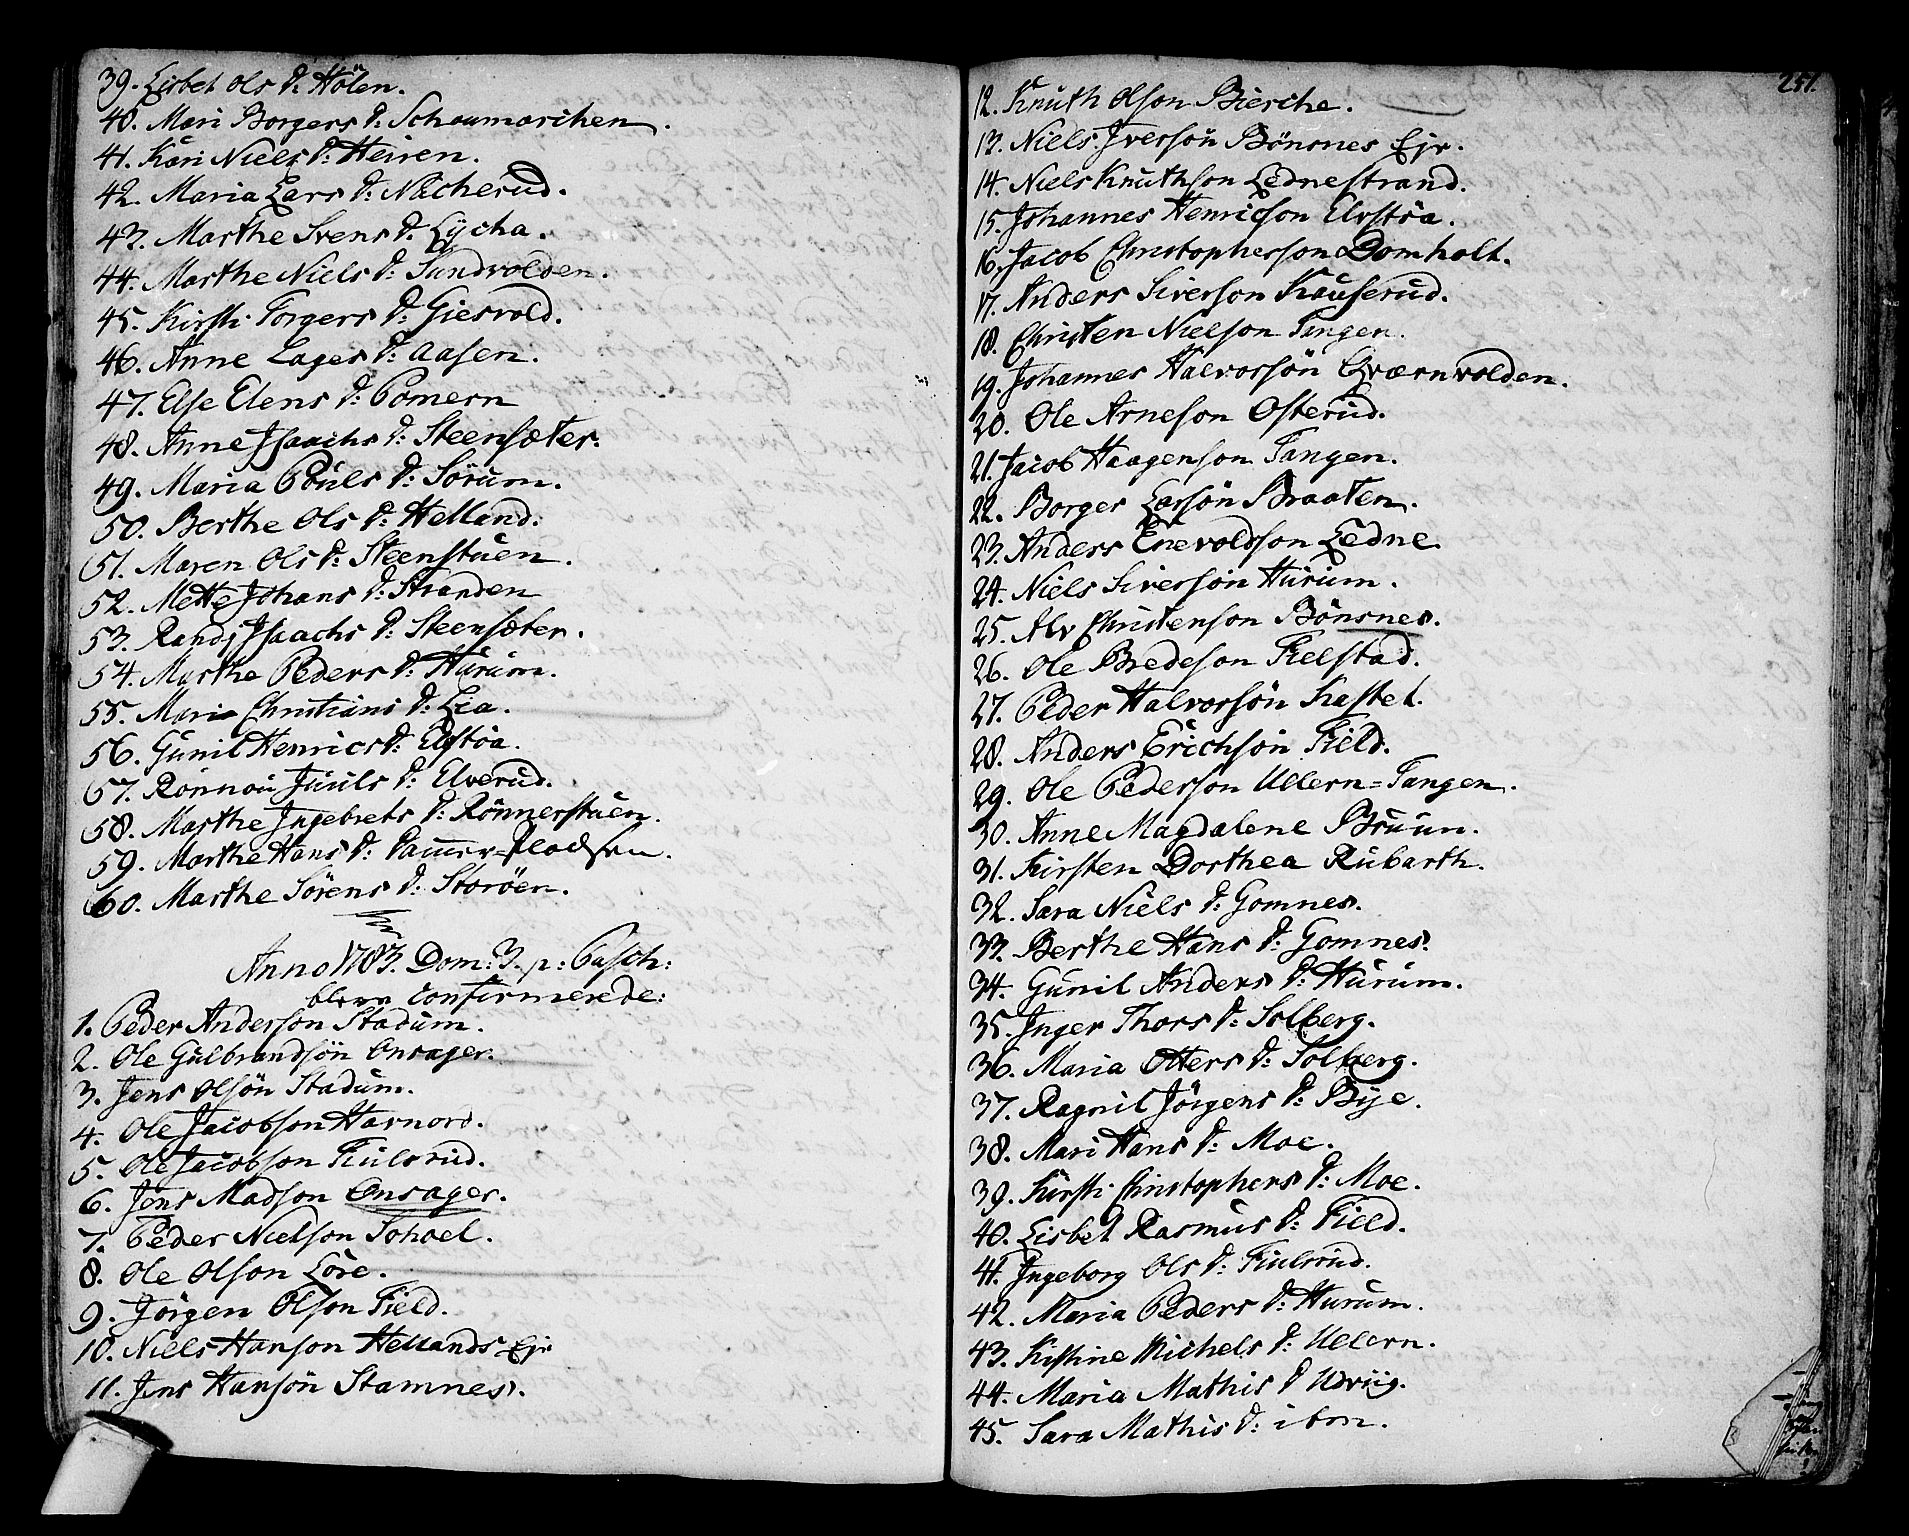 39. Lisbet Ols d: Hölen.
40. Mari Borgers d: Schoumarchen.
41. Kari Niels d: Heiren.
42. Maria Lars d: Nächerud.
43. Marthe Svens d: Lÿcha.
44. Marthe Niels d: Sundvolden.
45. Kirsti Torgers d: Giesvold.
46. Anne Lages d: Aasen.
47. Else Elens d: Pomern
48. Anne Isaachs d: Steensæter.
49. Maria Pouls d: Sörum.
50. Berthe Ols d: Helland.
51. Maren Ols d: Steenstuen.
52. Mette Johans d: Stranden
53. Randj Isaachs d: Steensæter.
54. Marthe Peders d: Hurum.
55. Maria Christians d: Lia.
56. Gunil Henrics d: Elvstöa.
57. Rönnou Juuls d: Elverud.
58. Marthe Ingebrets d: Rönnerstuen.
59. Marthe Hans d: Pladsen.
60. Marthe Sörens d: Storöen.
Anno 1783. Dom: 3. p: Pasch:
bleve confirmerede:
1. Peder Anderson Stadum.
2. Ole Gulbrandsön Onsager.
3. Jens Olsön Stadum.
4. Ole Jacobson Harnord.
5. Ole Jacobson Fiulsrud.
6. Jens Madson Onsager.
7. Peder Nielson Sohoel.
8. Ole Olson Löre.
9. Jörgen Olson Field.
10. Niels Hanson Hellands Ejr
11. Jens Hansön Stamnes.
251.
12. Knuth Olson Bierche.
13. Niels Iversön Bönsnes Ejr.
14. Niels Knuthson Lednestrand.
15. Johannes Henricson Elvstöa.
16. Jacob Christopherson Domholt.
17. Anders Siverson Kauserud.
18. Christen Nielson Tangen.
19. Johannes Halvorsön Qværnvolden.
20. Ole Arneson Osterud.
21. Jacob Haagenson Tangen.
22. Borger Larsön Braaten.
23. Anders Enevoldson Ledne.
24. Niels Siverson Hurum.
25. Alv Christenson Bönsnes.
26. Ole Bredeson Fielstad.
27. Peder Halvorsön Kastet.
28. Anders Erichson Field.
29. Ole Pederson Ullern=Tangen.
30. Anne Magdalene Bruun.
31. Kirsten Dorthea Rubarth.
32. Sara Niels d: Gomnes.
33. Berthe Hans d: Gomnes.
34. Gunil Anders d: Hurum.
35. Inger Thors d: Solberg.
36. Maria Otters d: Solberg.
37. Ragnil Jörgens d: Bÿe.
38. Mari Hans d: Moe.
39. Kirsti Christophers d: Moe.
40. Lisbet Rasmus d: Field.
41. Ingeborg Ols d: Fiulsrud.
42. Maria Peders d: Hurum.
43. Kistine Michels d: Ullern.
44. Maria Mathis d Udviig.
45. Sara Mathis d: ibm.